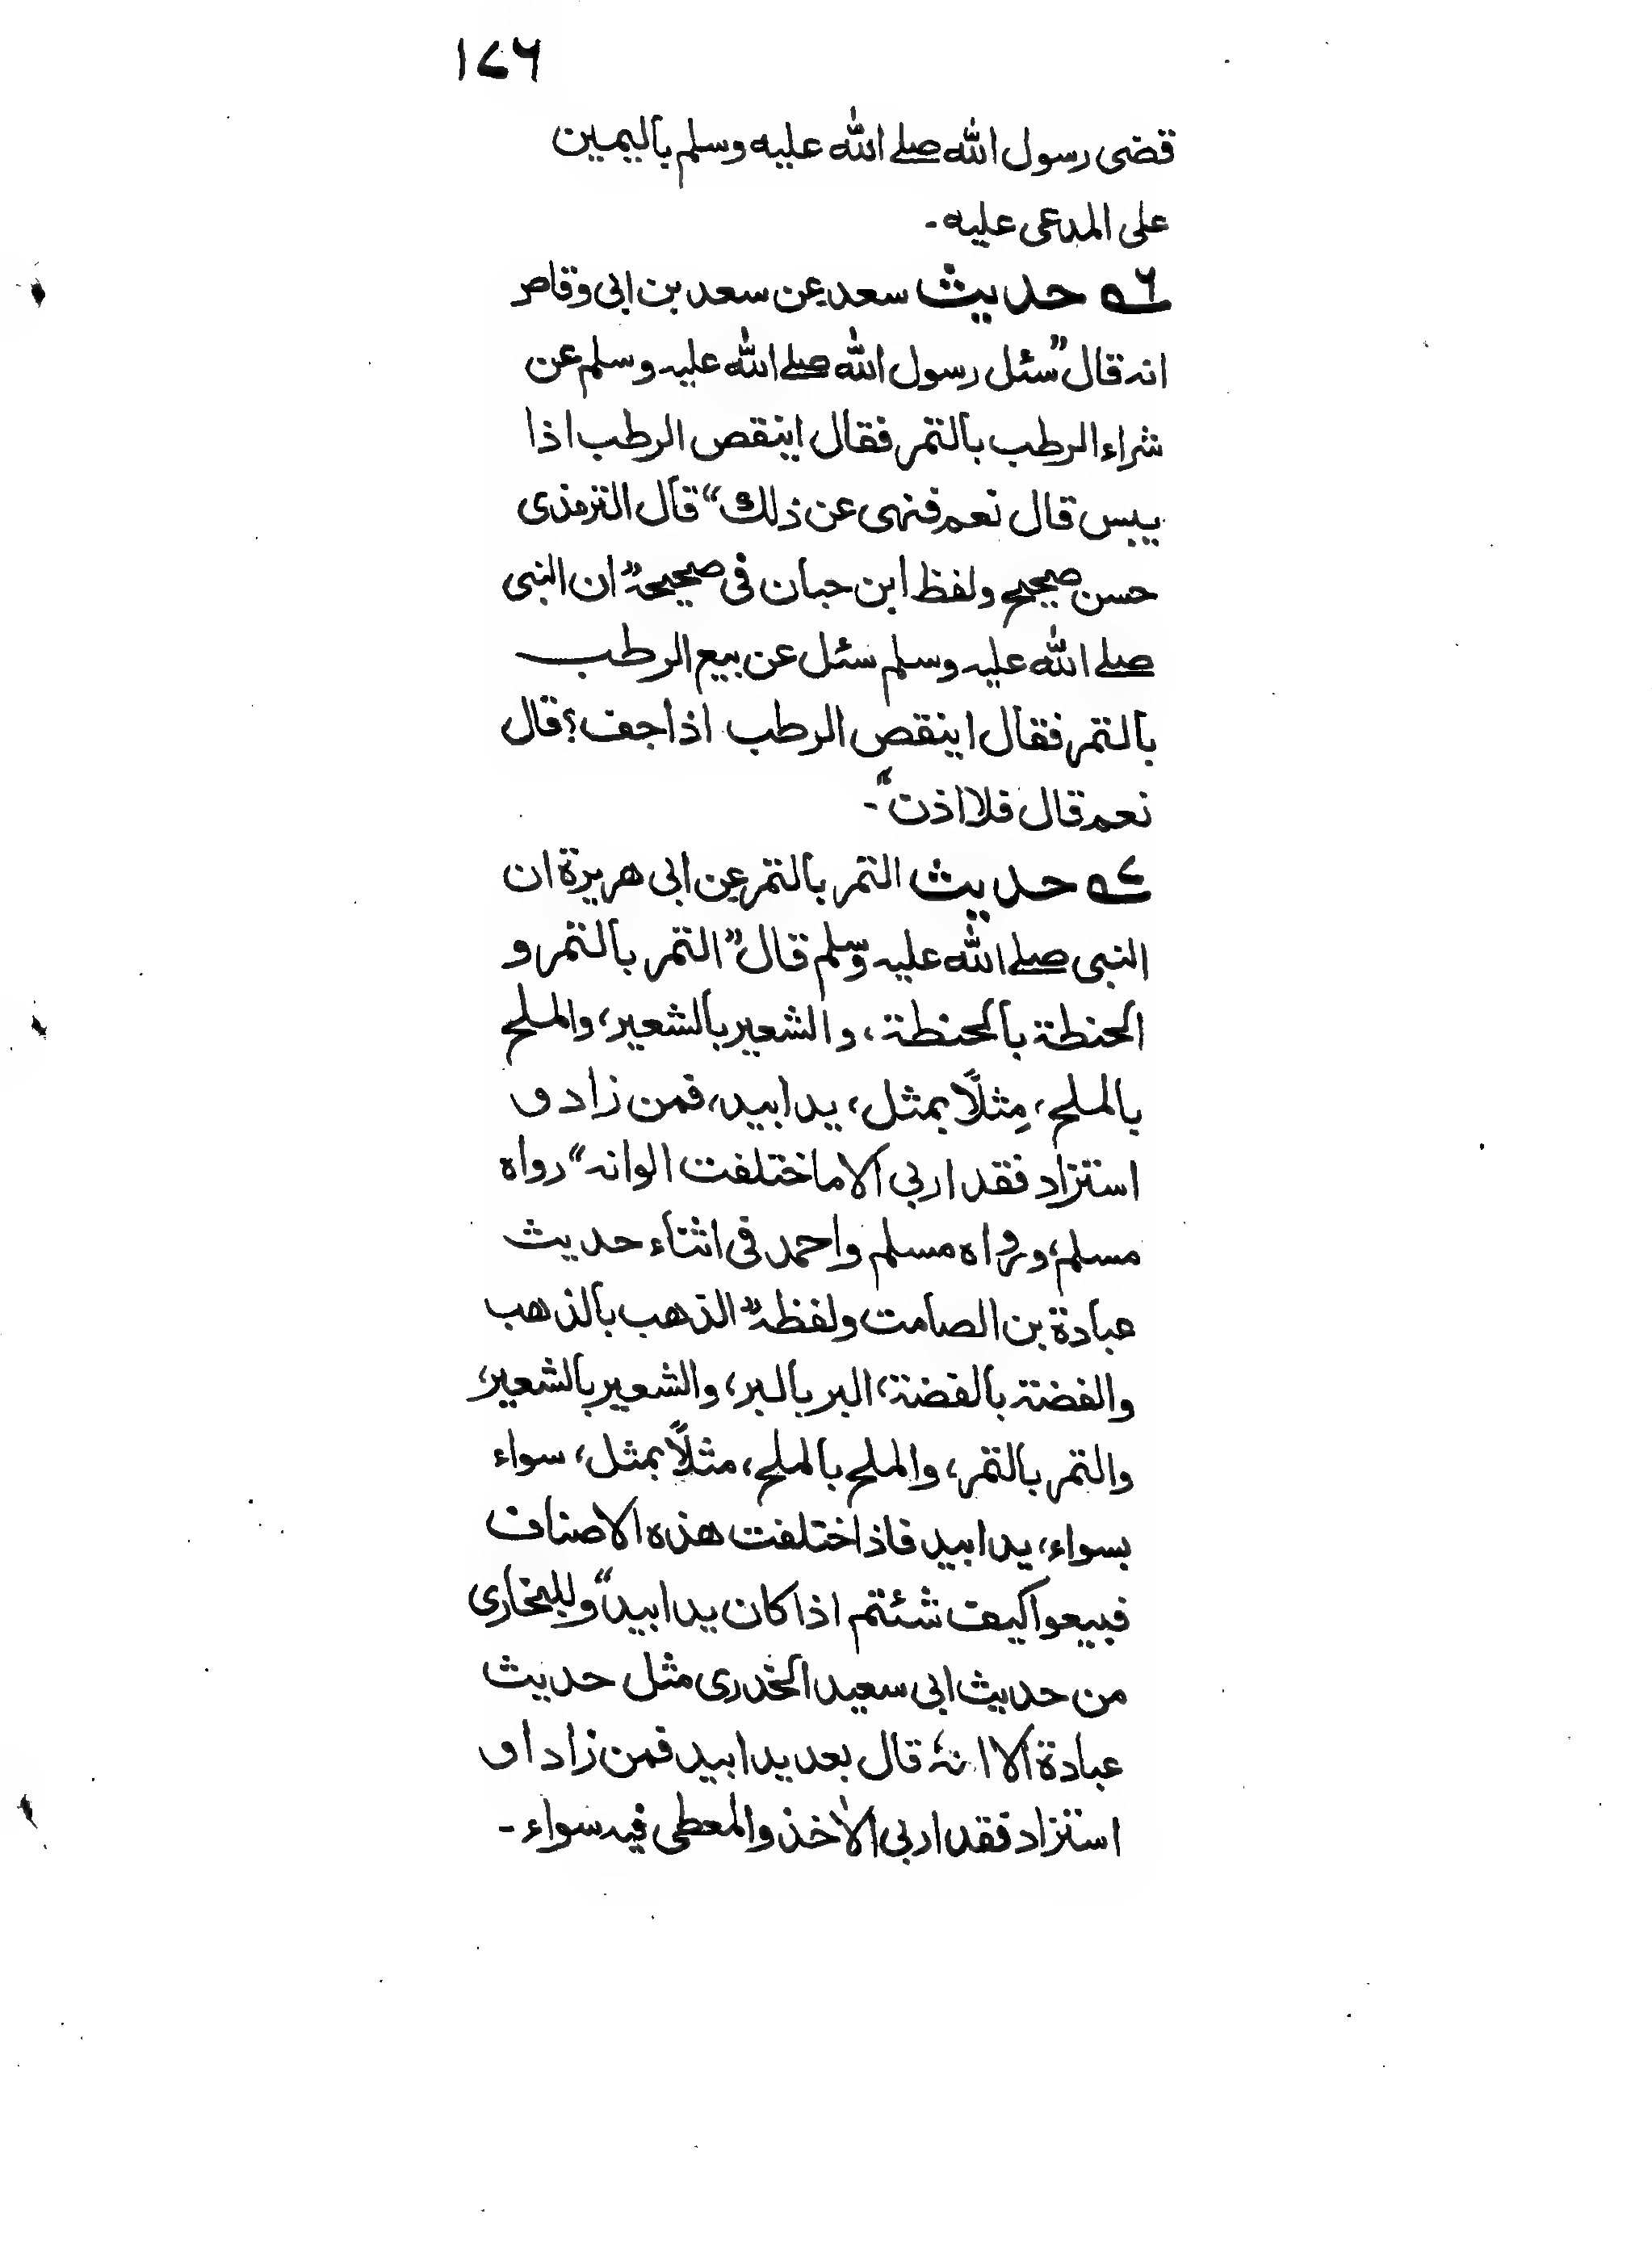 ۱۷۶
قضی رسول الله صلے الله علیه وسلم بالیمین
علی المدعی علیه۔
۵۶ حدیث سعد عن سعد بن ابی وقاص
انه قال ”سئل رسول الله صلے الله علیه وسلم عن
شراء الرطب بالتمر فقال اینقص الرطب اذا
یبس قال نعم فنهی عن ذلك“ قال الترمذی
حسن صحیح ولفظ ابن حبان فی صحیحه ”ان النبی
صلے الله علیه وسلم سئل عن بیع الرطب
بالتمر فقال اینقص الرطب اذا جف؟ قال
نعم قال فلا اذن“۔
۵۷ حدیث التمر بالتمر عن ابی هریرة ان
النبی صلے الله علیه وسلم قال ”التمر بالتمر و
الحنطة بالحنطة، والشعیر بالشعیر، والملح
بالملح، مِثلًا بمثل، یدا بید، فمن زاد و
استزاد فقد اربی الا ما ختلفت الوانه“ رواه
مسلم، ورواه مسلم واحمد فی اثناء حدیث
عبادة بن الصامت ولفظه ”الذهب بالذهب
والفضة بالفضة، البر بالبر، والشعیر بالشعیر،
والتمر بالتمر، والملح بالملح، مثلًا بمثل، سواء
بسواء، یدا بید فاذا ختلفت هذه الاصناف
فبیعوا کیف شئتم اذا کان یدا بید“ وللبخاری
من حدیث ابی سعید الخدری مثل حدیث
عبادة الا انهٗ قال بعد یدا بید فمن زاد او
استزاد فقد اربی الاٰخذ والمعطی فیه سواء۔